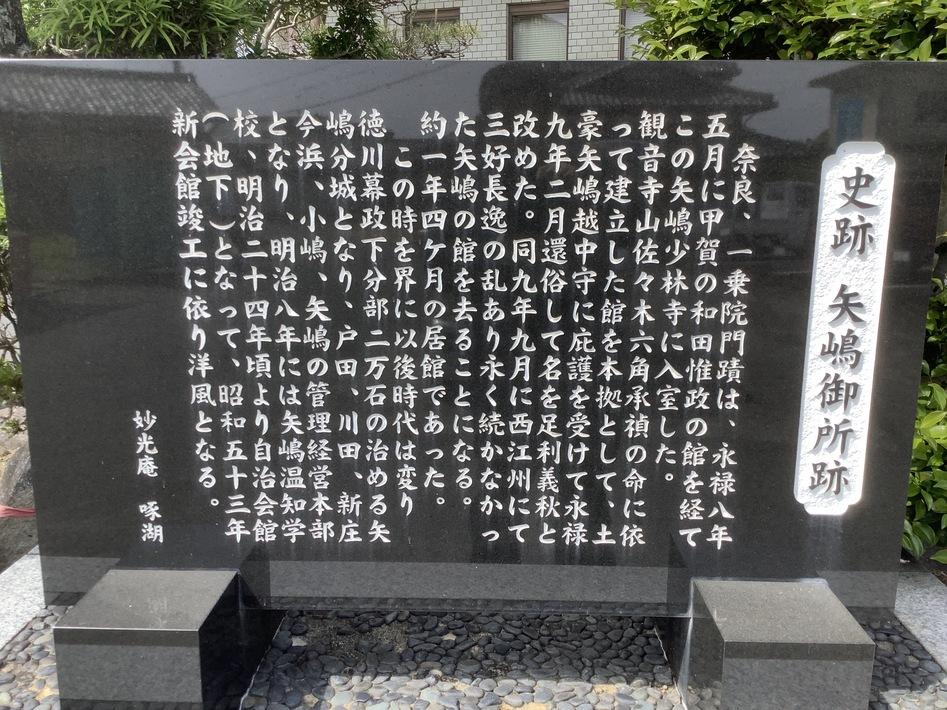 史跡 矢嶋御所跡
奈良、一乗院門蹟は、永禄八年
五月に甲賀の和田惟政の館を経て
この矢嶋少林寺に入室した。
観音寺山佐々木六角承禎の命に依
って建立した館を本拠として、土
豪矢嶋越中守に庇護を受けて永禄
九年二月還俗して名を足利義秋と
改めた。同九年九月に西江州にて
三好長逸の乱あり永く続かなかっ
た矢嶋の館を去ることになる。
約一年四ケ月の居館であった。
この時を界に以後時代は変り
徳川幕政下分部二万石の治める矢
嶋分城となり、戸田、川田、新庄
今浜、小嶋、矢嶋の管理経営本部
となり、明治八年には矢嶋温知学
校、明治二十四年頃より自治会館
(地下)となって、昭和五十三年
新会館竣工に依り洋風となる。
妙光庵 啄湖